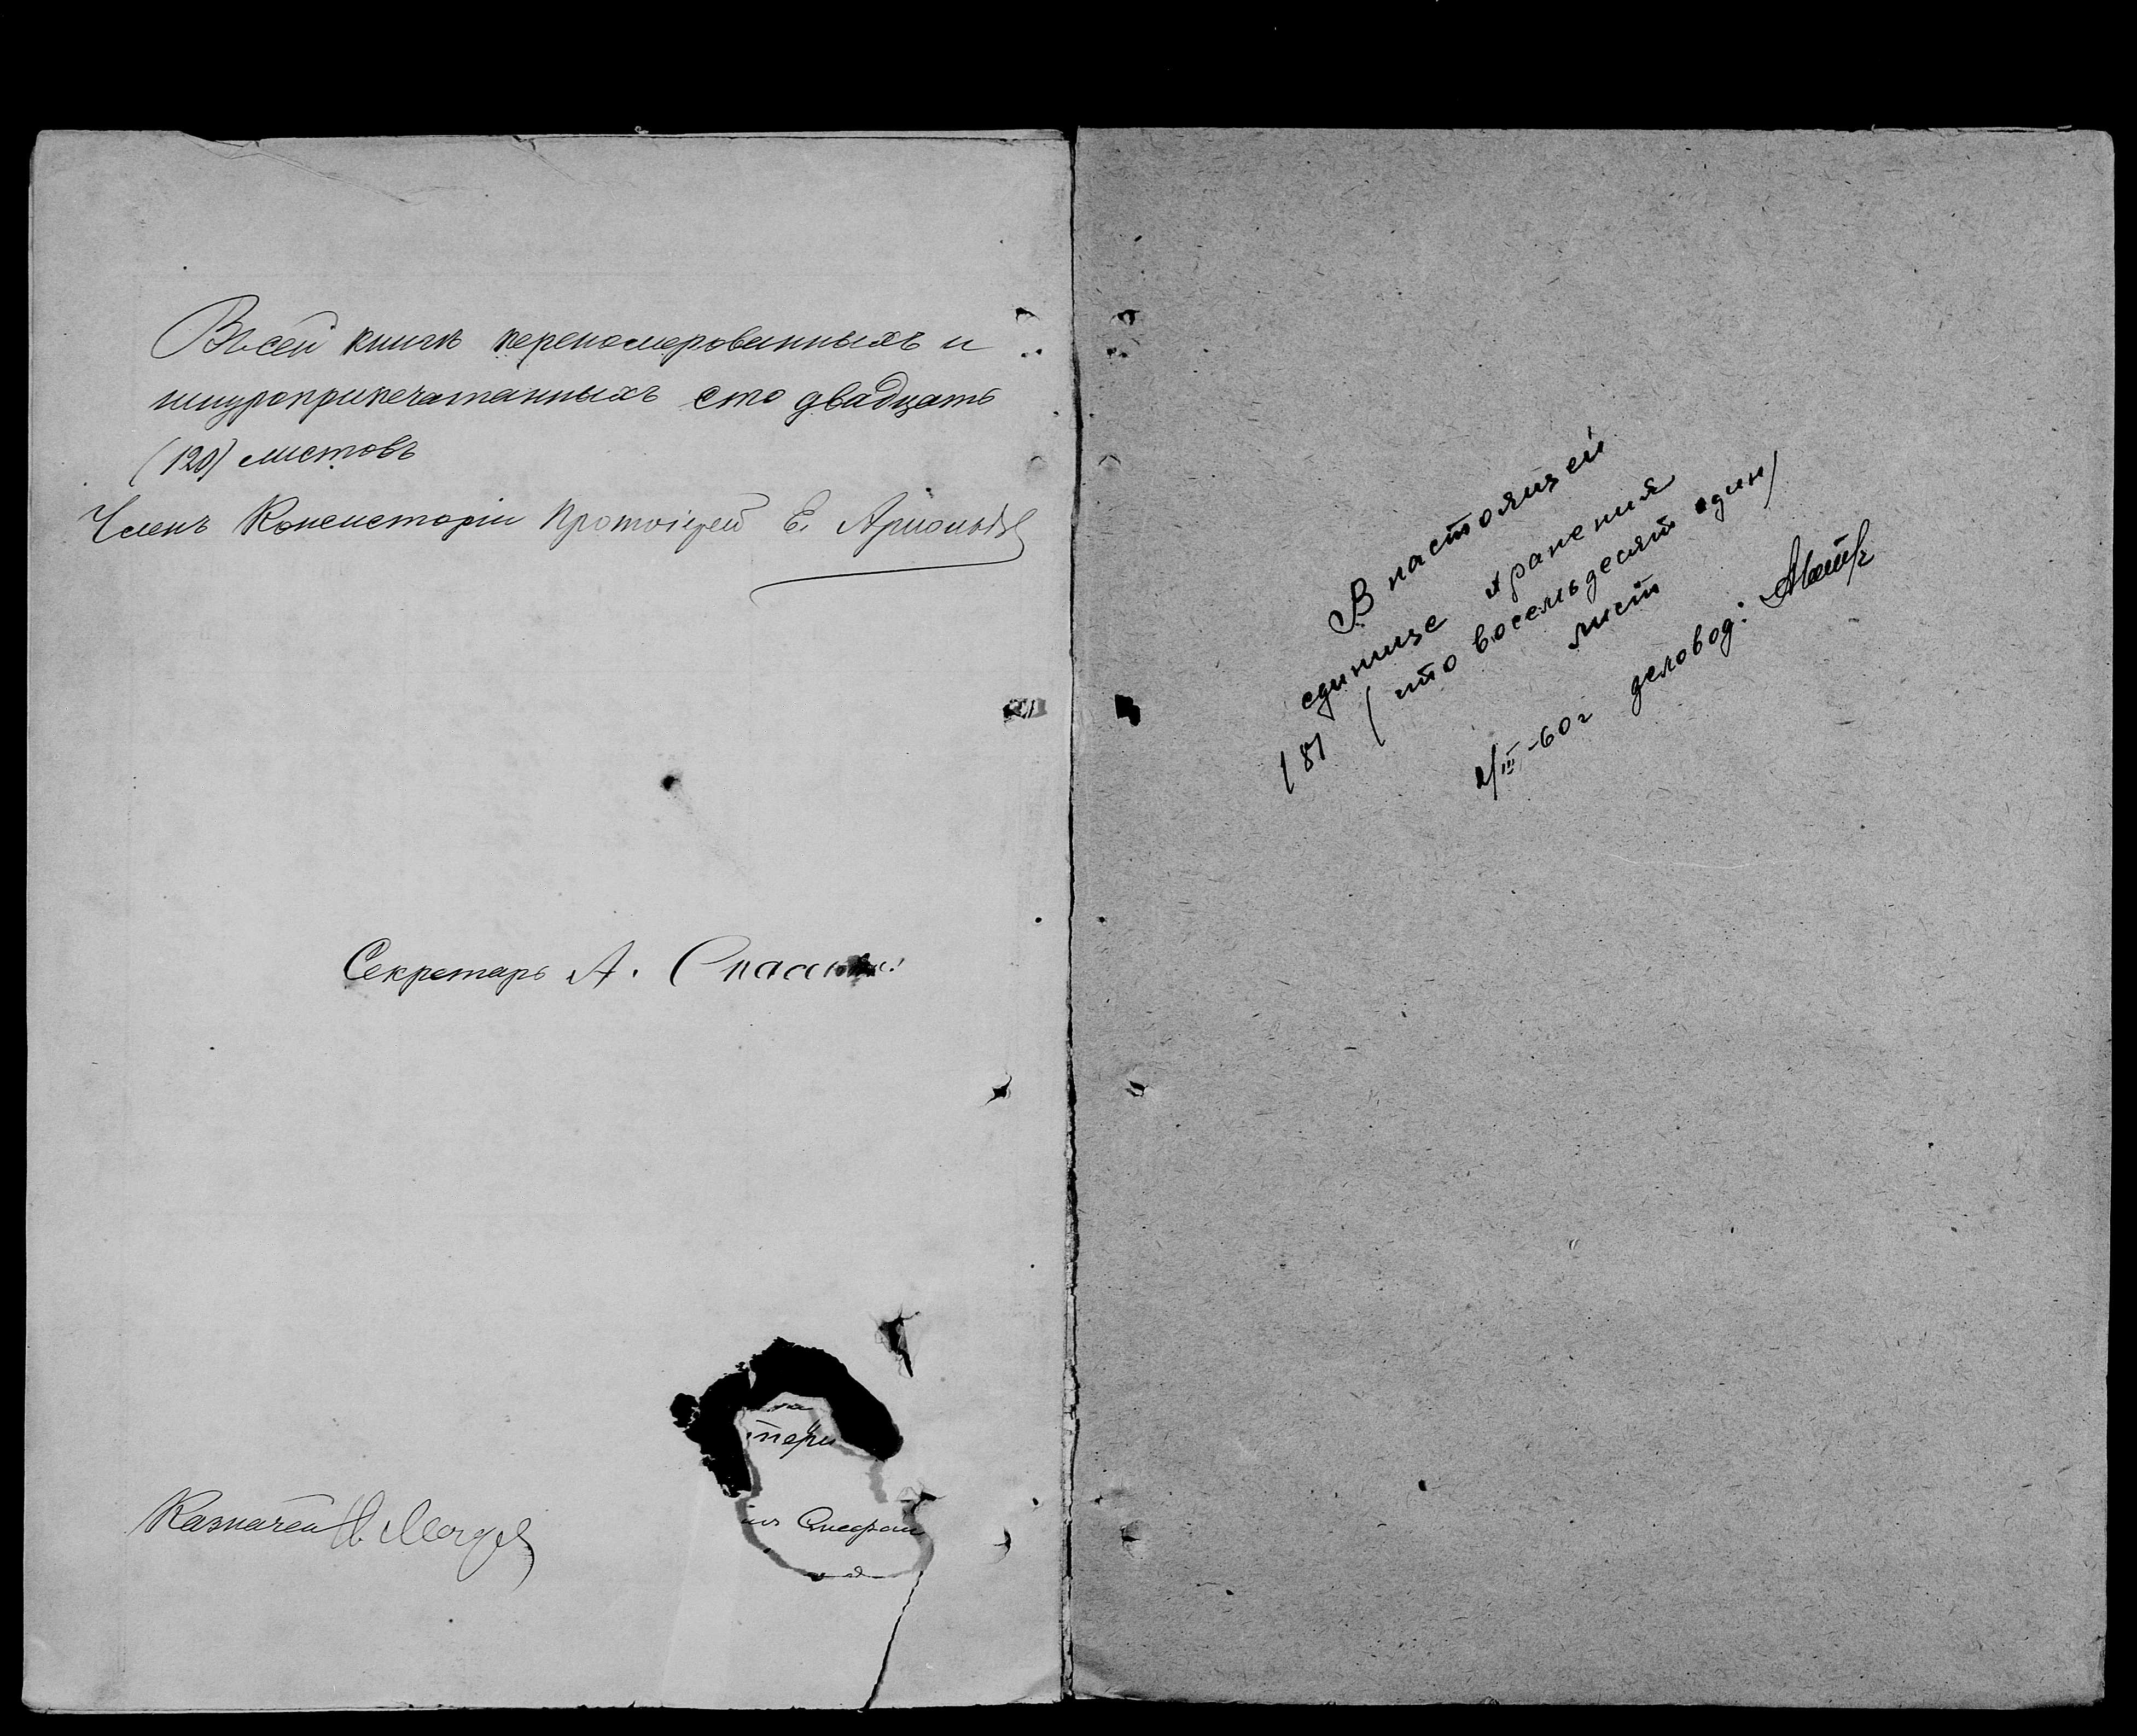 Въ сей книгѣ переномерованныхъ и
шнуроприпечатанныхъ сто двадцать
(120) листовъ
Членъ Консисторіи Протоіерей Е.
Секретарь А.
Казначей
В настоящей
единице хранения
181 (сто восемьдесят один)
лист
2/III-60г деловод: